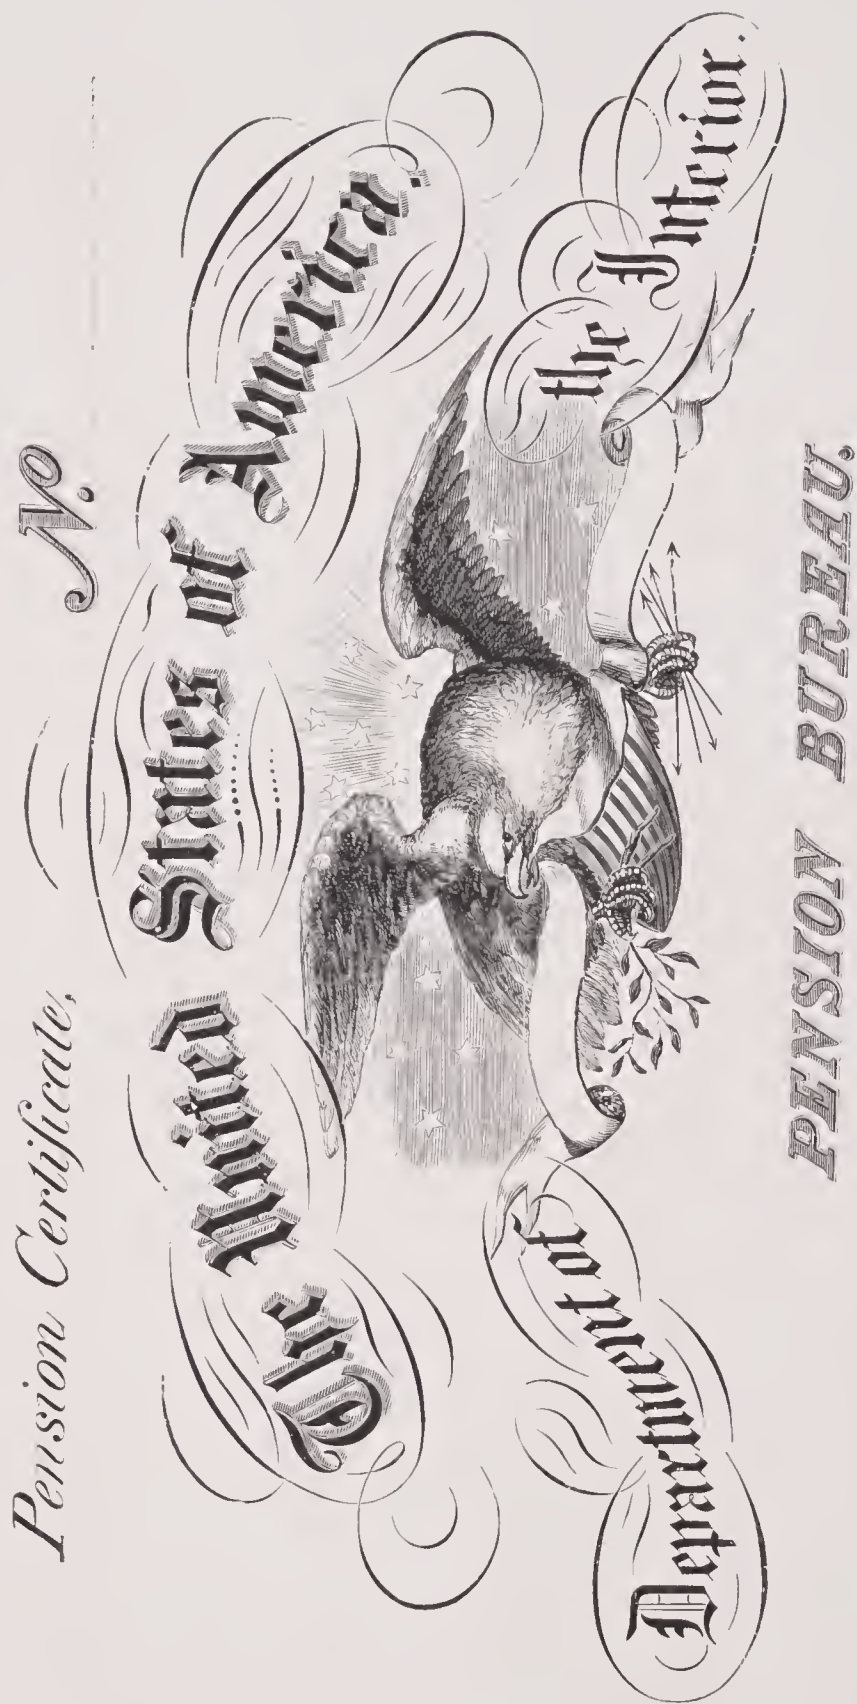 Pension Certificate, No.
The United States of America.
Department of the Interior.
PENSION BUREAU.